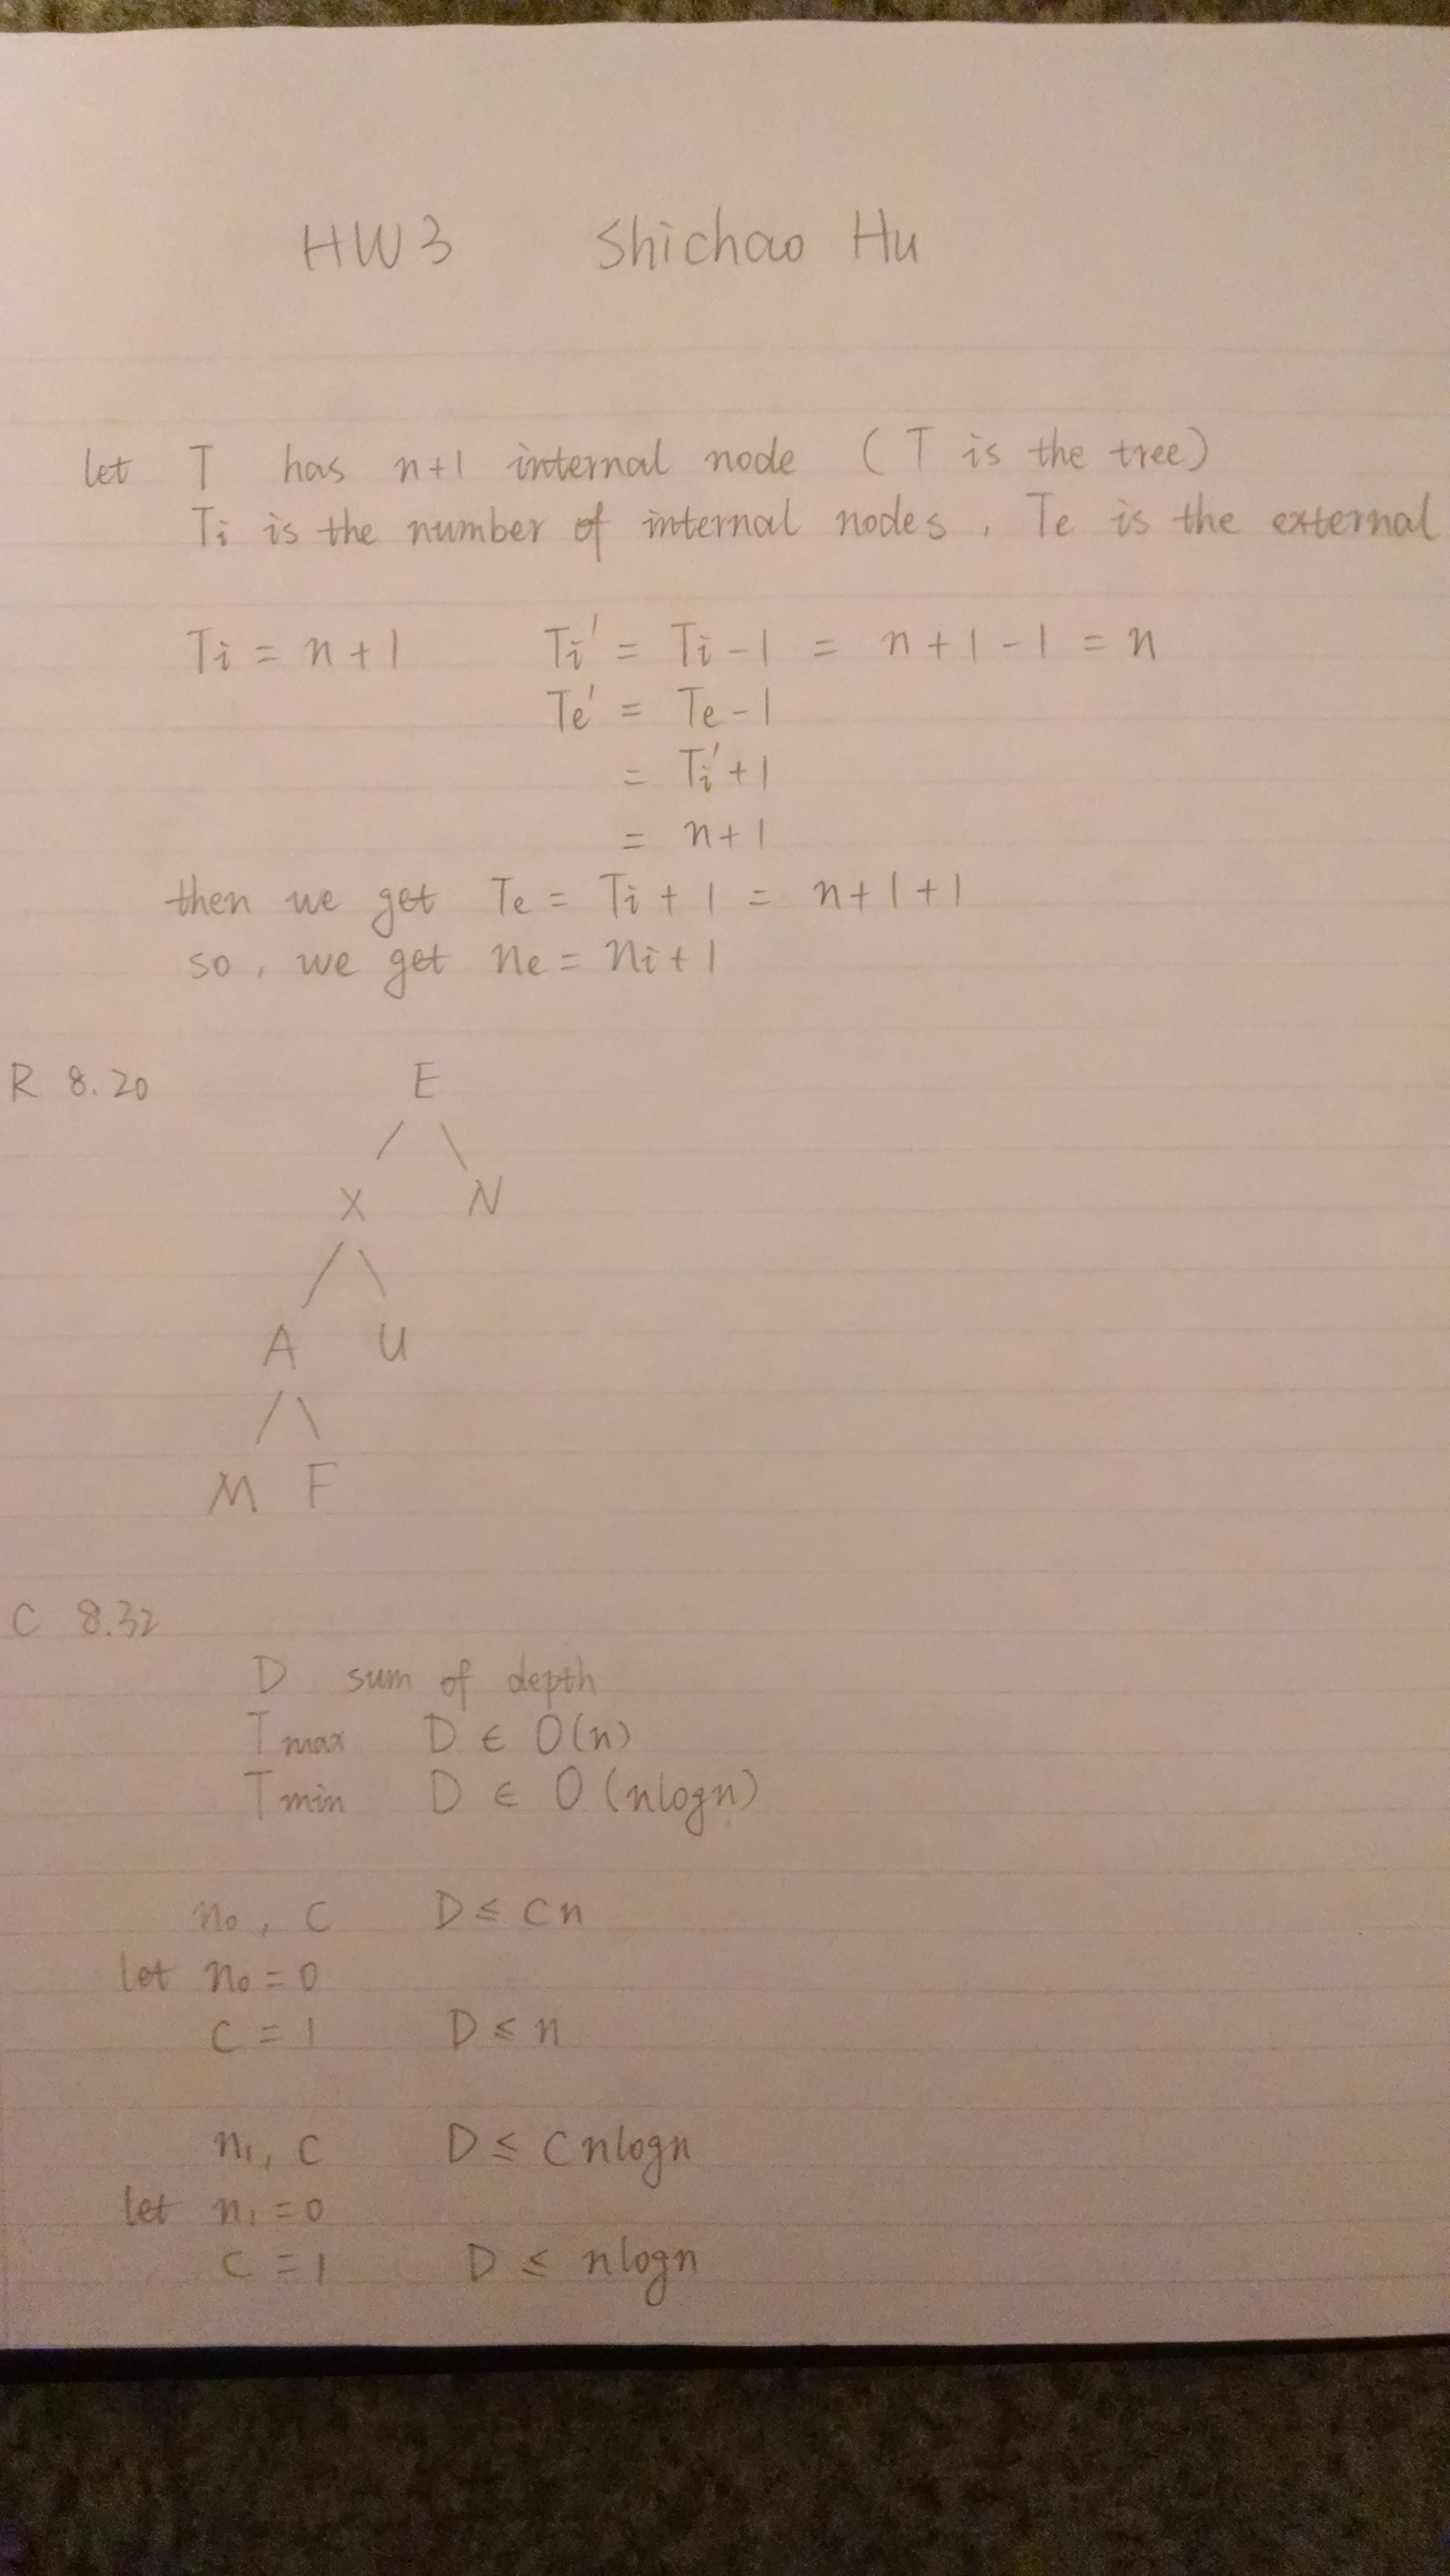 HW3 Shichao Hu
let T has n+1 internal node (T is the tree)
Ti is the number of internal nodes, Te is the external
Ti = n+1 Ti' = Ti-1 = n+1-1 = n
Te' = Te-1
= Ti'+1
= n+1
then we get Te = Ti+1 = n+1+1
so, we get ne = ni+1
R 8.20 E
X N
A U
M F
C 8.32
D sum of depth
Tmax D ∈ O(n)
Tmin D ∈ O(nlogn)
n₀, C D ≤ Cn
let n₀ = 0
C = 1 D ≤ n
n₁, C D ≤ Cnlogn
let n₁ = 0
C = 1 D ≤ nlogn